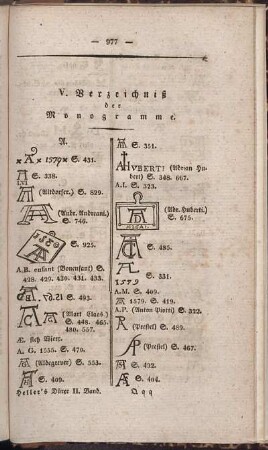 — 977 —
V. Verzeichniß
der
Monogramme.
A.
A 1579 S. 431.
S. 338.
(Altdorfer.) S. 829.
(Andr. Andreani.)
S. 746.
1580 S. 925.
A.B. enfant (Bonenfant) S.
428. 429. 430. 431. 433.
S. 493.
(Allart Claeß.)
S. 448. 465.
480. 557.
Æ. sieh Wierx.
A. G. 1555. S. 470.
(Aldegrever) S. 553.
S. 409.
Heller's Dürer II. Band.
S. 351.
HVBERTI (Adrian Hu-
berti) S. 348. 667.
A.I. S. 323.
(Adr. Huberti.)
S. 675.
S. 485.
S. 331.
1579
A.M. S. 409.
1579. S. 419.
A.P. (Anton Piotti) S. 322.
(Prestel) S. 489.
(Prestel) S. 467.
S. 402.
S. 404.
Qqq